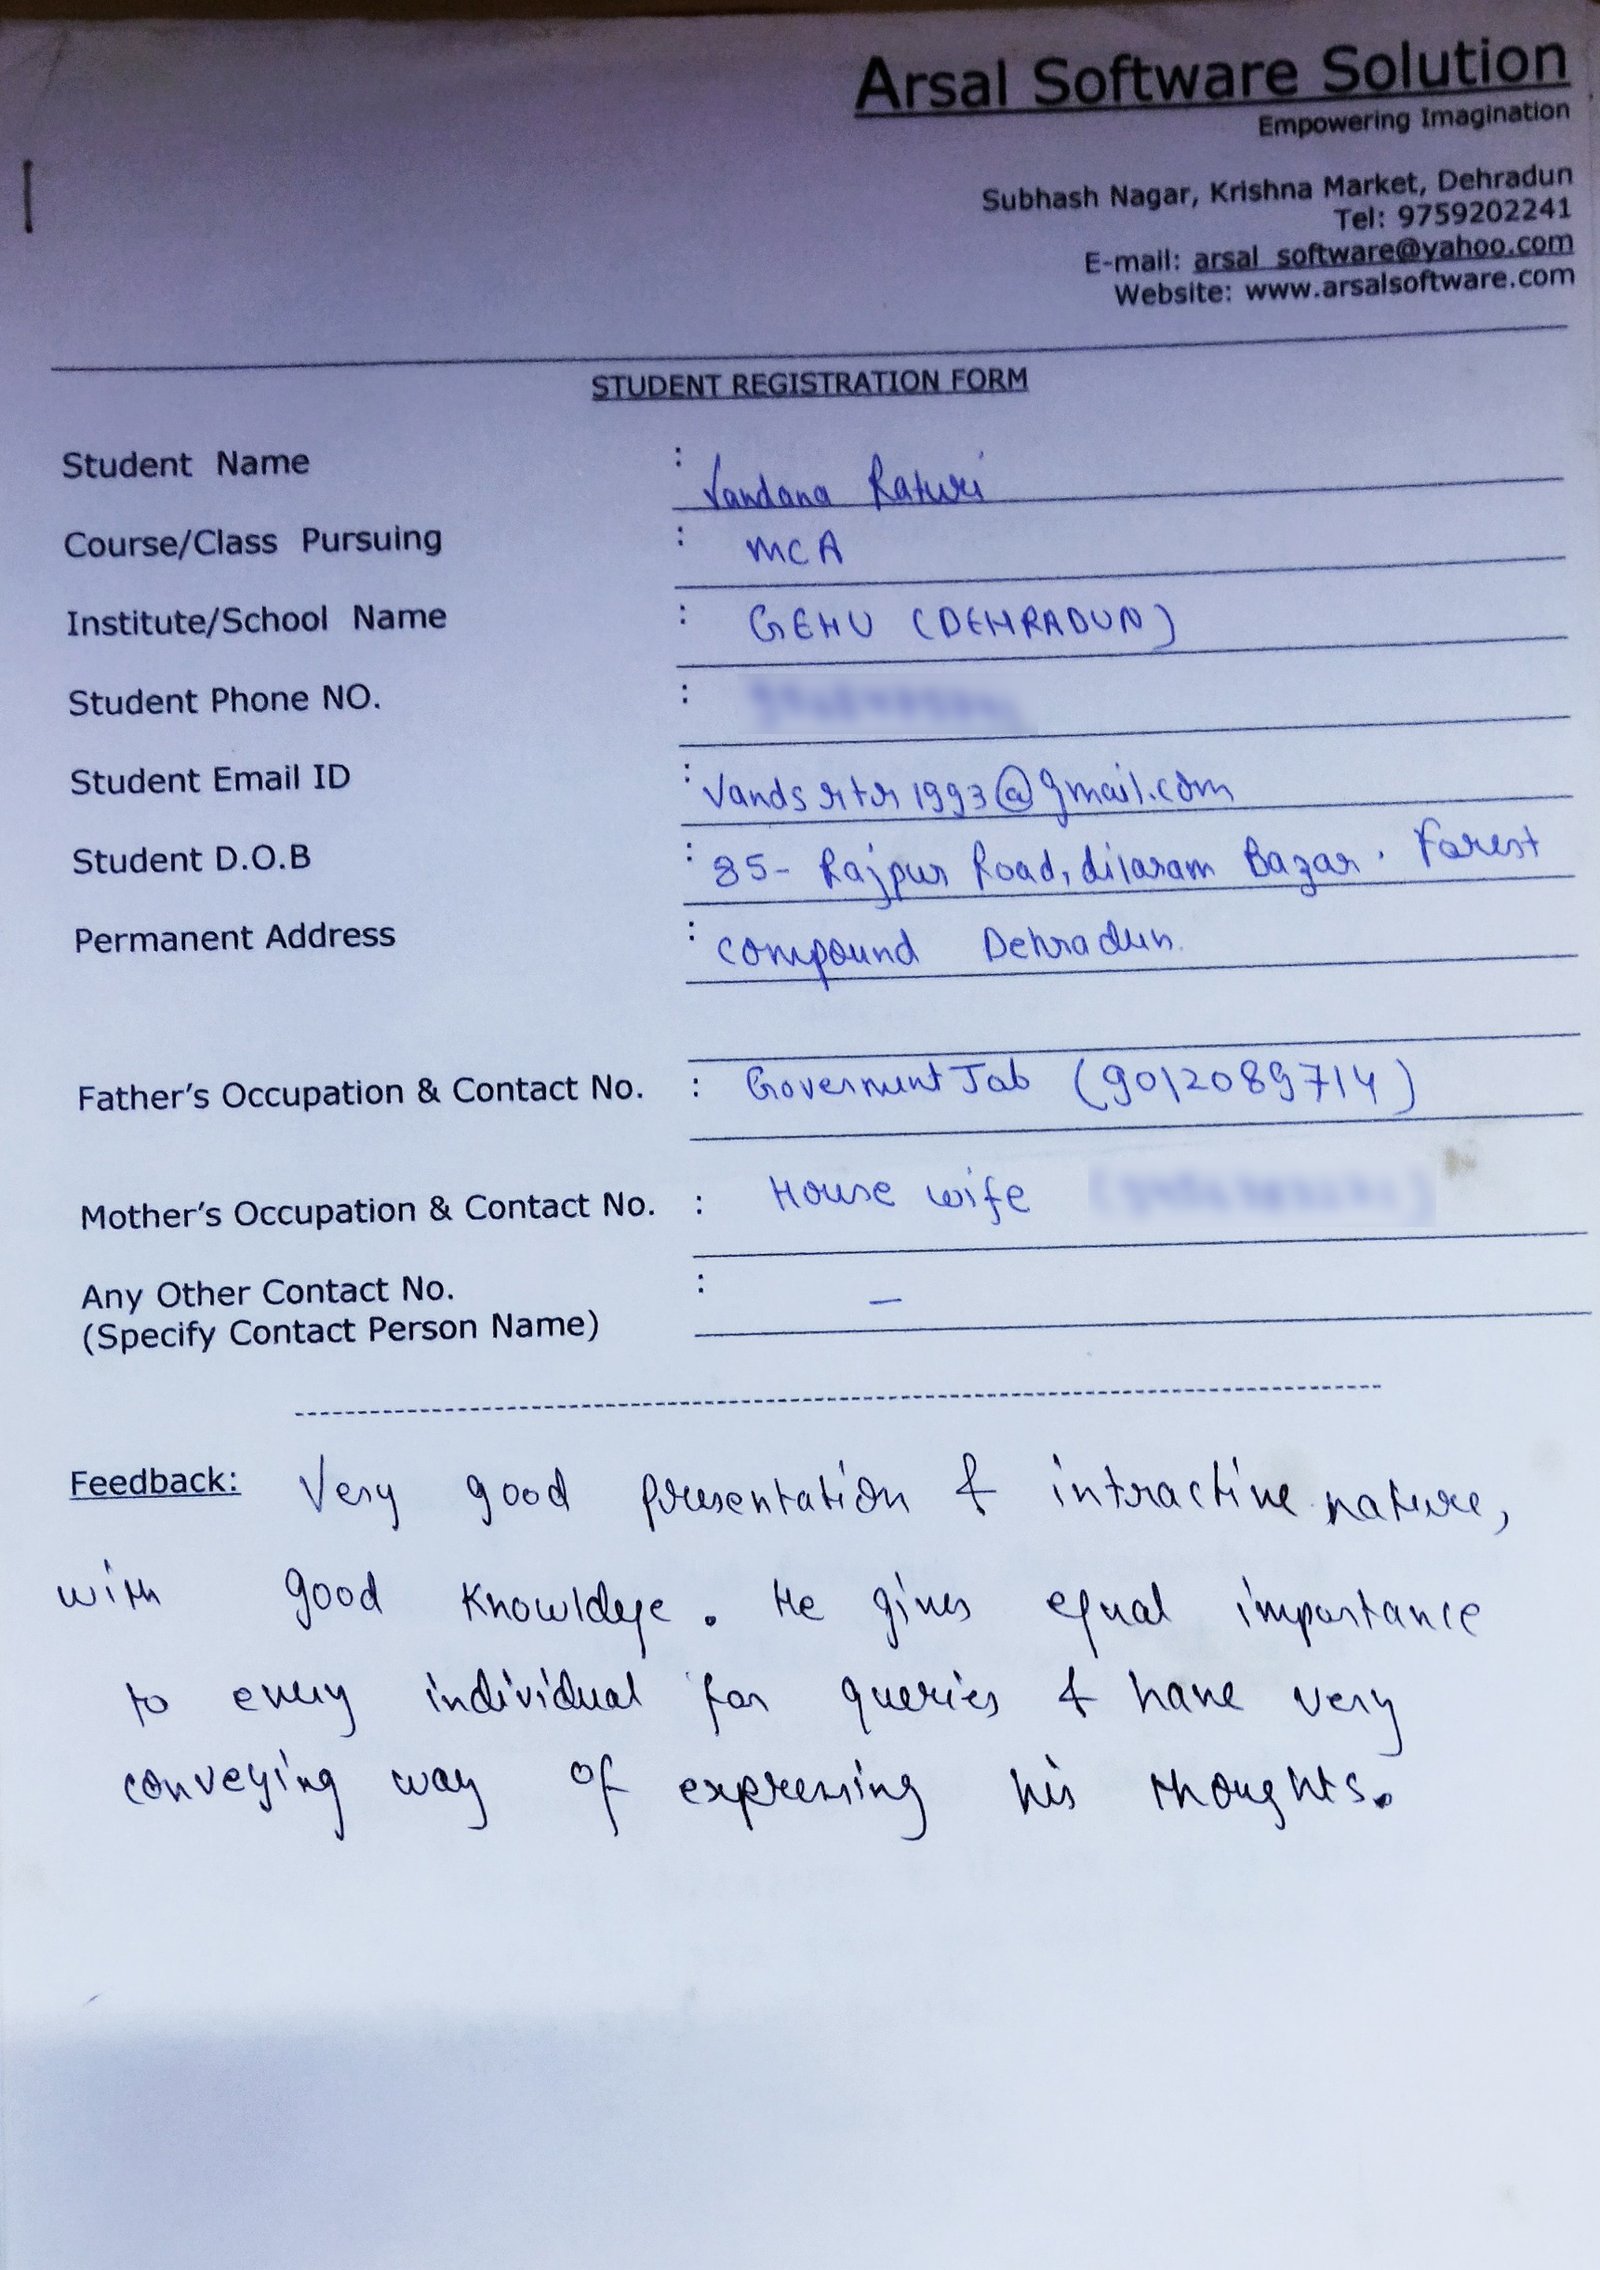 Arsal Software Solution
Empowering Imagination
Subhash Nagar, Krishna Market, Dehradun
Tel: 9759202241
E-mail: arsal_software@yahoo.com
Website: www.arsalsoftware.com
STUDENT REGISTRATION FORM
Student Name : Vandana Raturi
Course/Class Pursuing : MCA
Institute/School Name : GEHU (DEHRADUN)
Student Phone NO. :
Student Email ID : Vandsrtr1993@gmail.com
Student D.O.B : 85- Rajpur Road, dilaram Bazar. Forest
Permanent Address : Compound Dehradun.
Father's Occupation & Contact No. : Goverment Job (9012089714)
Mother's Occupation & Contact No. : House wife
Any Other Contact No. : —
(Specify Contact Person Name)
Feedback: Very good presentation & intractive nature,
with good Knowldge. He gives equal importance
to every individual for queries & have very
conveying way of expressing his thoughts.